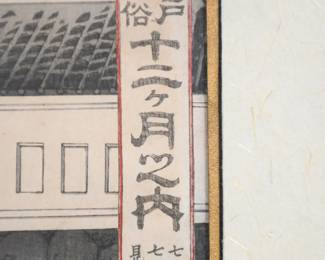 戸
俗
十二ヶ月之内
七七